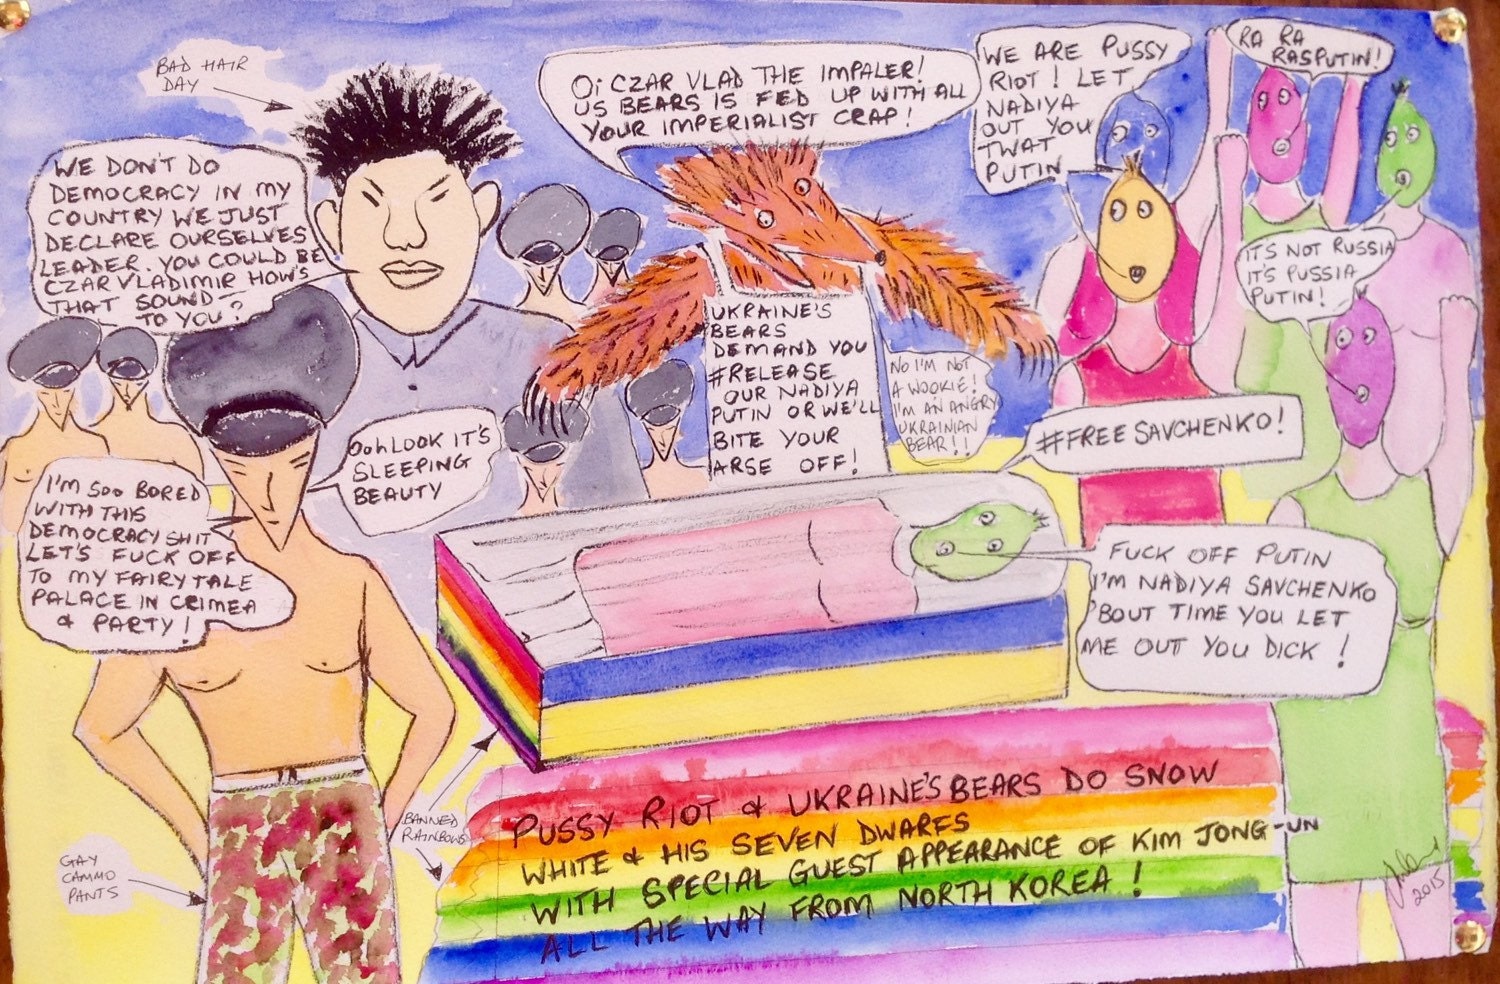 BAD HAIR
DAY
WE DON'T DO
DEMOCRACY IN MY
COUNTRY WE JUST
DECLARE OURSELVES
LEADER. YOU COULD BE
CZAR VLADIMIR HOW'S
THAT SOUND
TO YOU?
Oi CZAR VLAD THE IMPALER!
US BEARS IS FED UP WITH ALL
YOUR IMPERIALIST CRAP!
WE ARE PUSSY
RIOT! LET
NADIYA
OUT YOU
TWAT
PUTIN
RA RA
RASPUTIN!
IT'S NOT RUSSIA
IT'S PUSSIA
PUTIN!
UKRAINE'S
BEARS
DEMAND YOU
#RELEASE
OUR NADIYA
PUTIN OR WE'LL
BITE YOUR
ARSE OFF!
NO I'M NOT
A WOOKIE!
I'M AN ANGRY
UKRAINIAN
BEAR!!
#FREE SAVCHENKO!
OOH LOOK IT'S
SLEEPING
BEAUTY
I'M SOO BORED
WITH THIS
DEMOCRACY SHIT
LET'S FUCK OFF
TO MY FAIRYTALE
PALACE IN CRIMEA
& PARTY!
FUCK OFF PUTIN
I'M NADIYA SAVCHENKO
'BOUT TIME YOU LET
ME OUT YOU DICK!
BANNED
RAINBOWS
GAY
CAMMO
PANTS
PUSSY RIOT & UKRAINE'S BEARS DO SNOW
WHITE & HIS SEVEN DWARFS
WITH SPECIAL GUEST APPEARANCE OF KIM JONG-UN
ALL THE WAY FROM NORTH KOREA!
2015